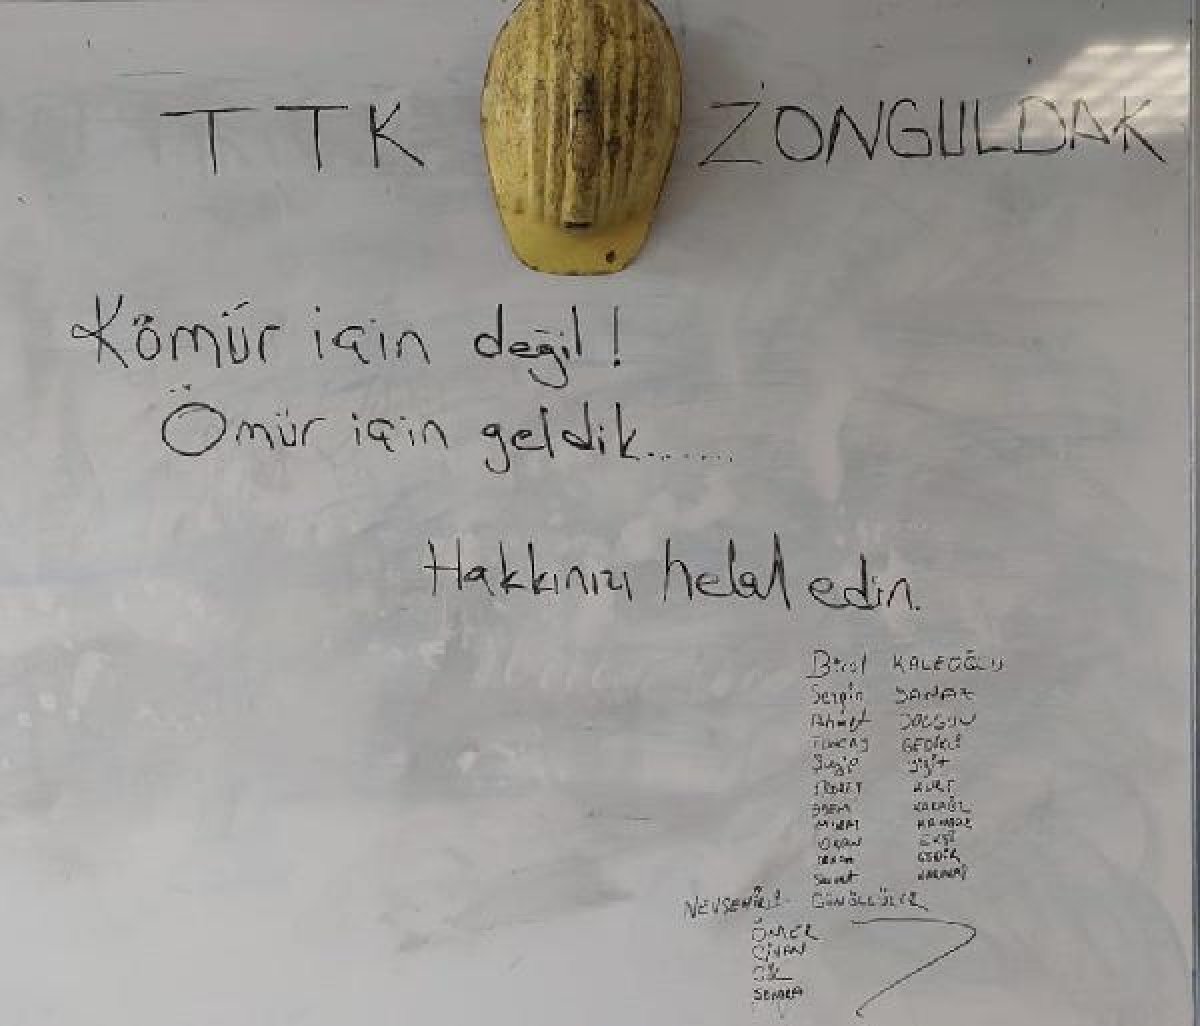 TTK ZONGULDAK
Kömür için değil!
Ömür için geldik.......
Hakkınızı helal edin.
Birol KALEOĞLU
Sezgin
Ahmet
Tuncay GEDİKLİ
Yiğit
KURT
Adem
Murat
Okan

NEVŞEHİRLİ GÖNÜLLÜLER
ÖMER
CİVAN
SEMRA